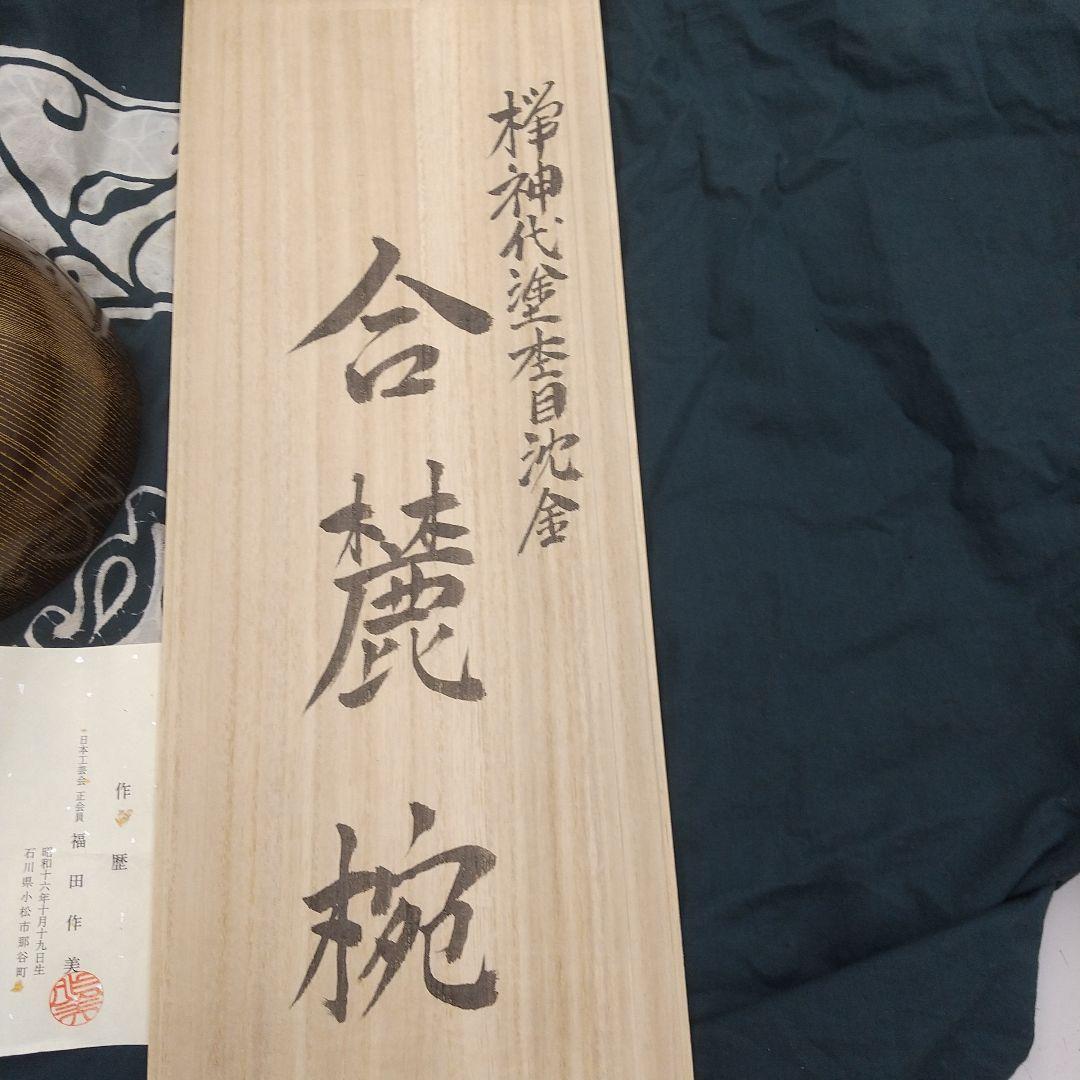 欅神代塗杢目沈金
合麓椀
作歴
日本工芸会 正会員 福田作美
昭和十六年十月十九日生
石川県小松市那谷町